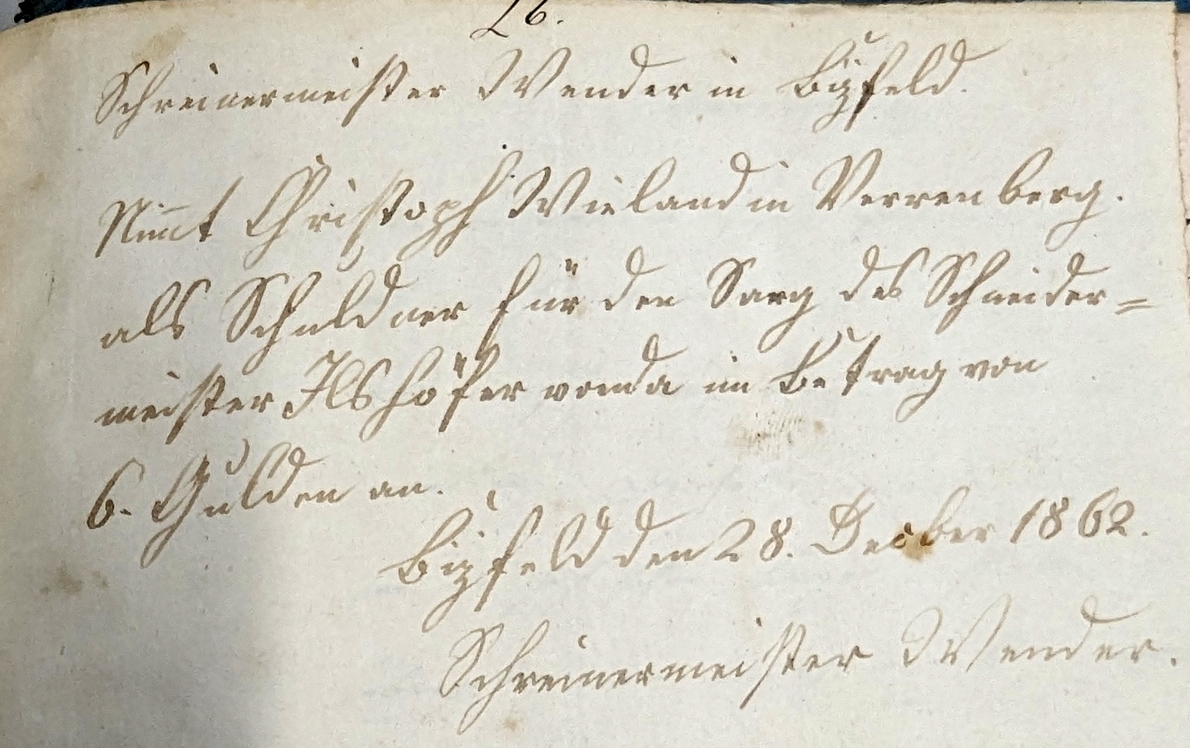 26.
Schreinermeister Wender in Bizfeld.
Nim̄t Christoph Wieland in Verrenberg.
als Schuldner für den Sarg des Schneider=
meister Ilshöfer von da im Betrag von
6. Gulden an.
Bizfeld den 28. December 1862.
Schreinermeister Wender.